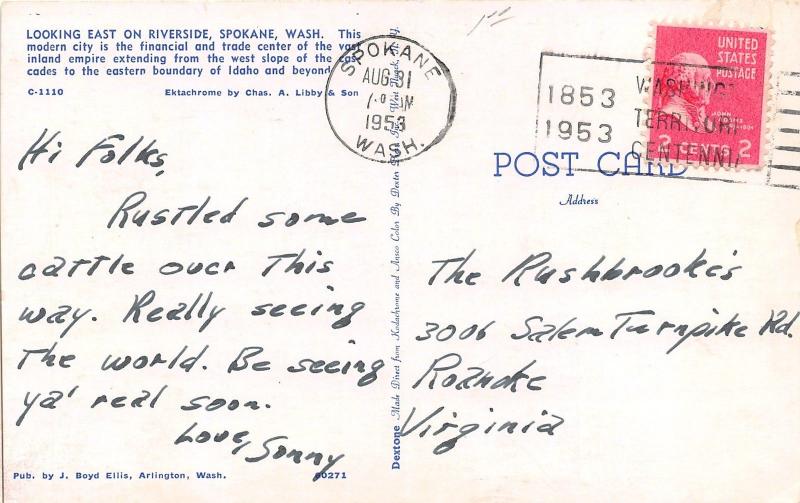 LOOKING EAST ON RIVERSIDE, SPOKANE, WASH. This
modern city is the financial and trade center of the vast
inland empire extending from the west slope of the Cas-
cades to the eastern boundary of Idaho and beyond.
C-1110 Ektachrome by Chas. A. Libby & Son
Hi Folks,
Rustled some
cattle over This
way. Really seeing
The world. Be seeing
ya' real soon.
Love, Sonny
Pub. by J. Boyd Ellis, Arlington, Wash. 60271
Dextone Made Direct from Kodachrome and Ansco Color By Dexter Press, Inc., West Nyack,
SPOKANE
AUG 31
1953
WASH.
1853
1953
WASHINGT
TERRITOR
CENTENNI
UNITED
STATES
POSTAGE
JOHN
ADAMS
2 CENTS 2
POST CARD
Address
The Rushbrooke's
3006 Salem Turnpike Rd.
Roanoke
Virginia